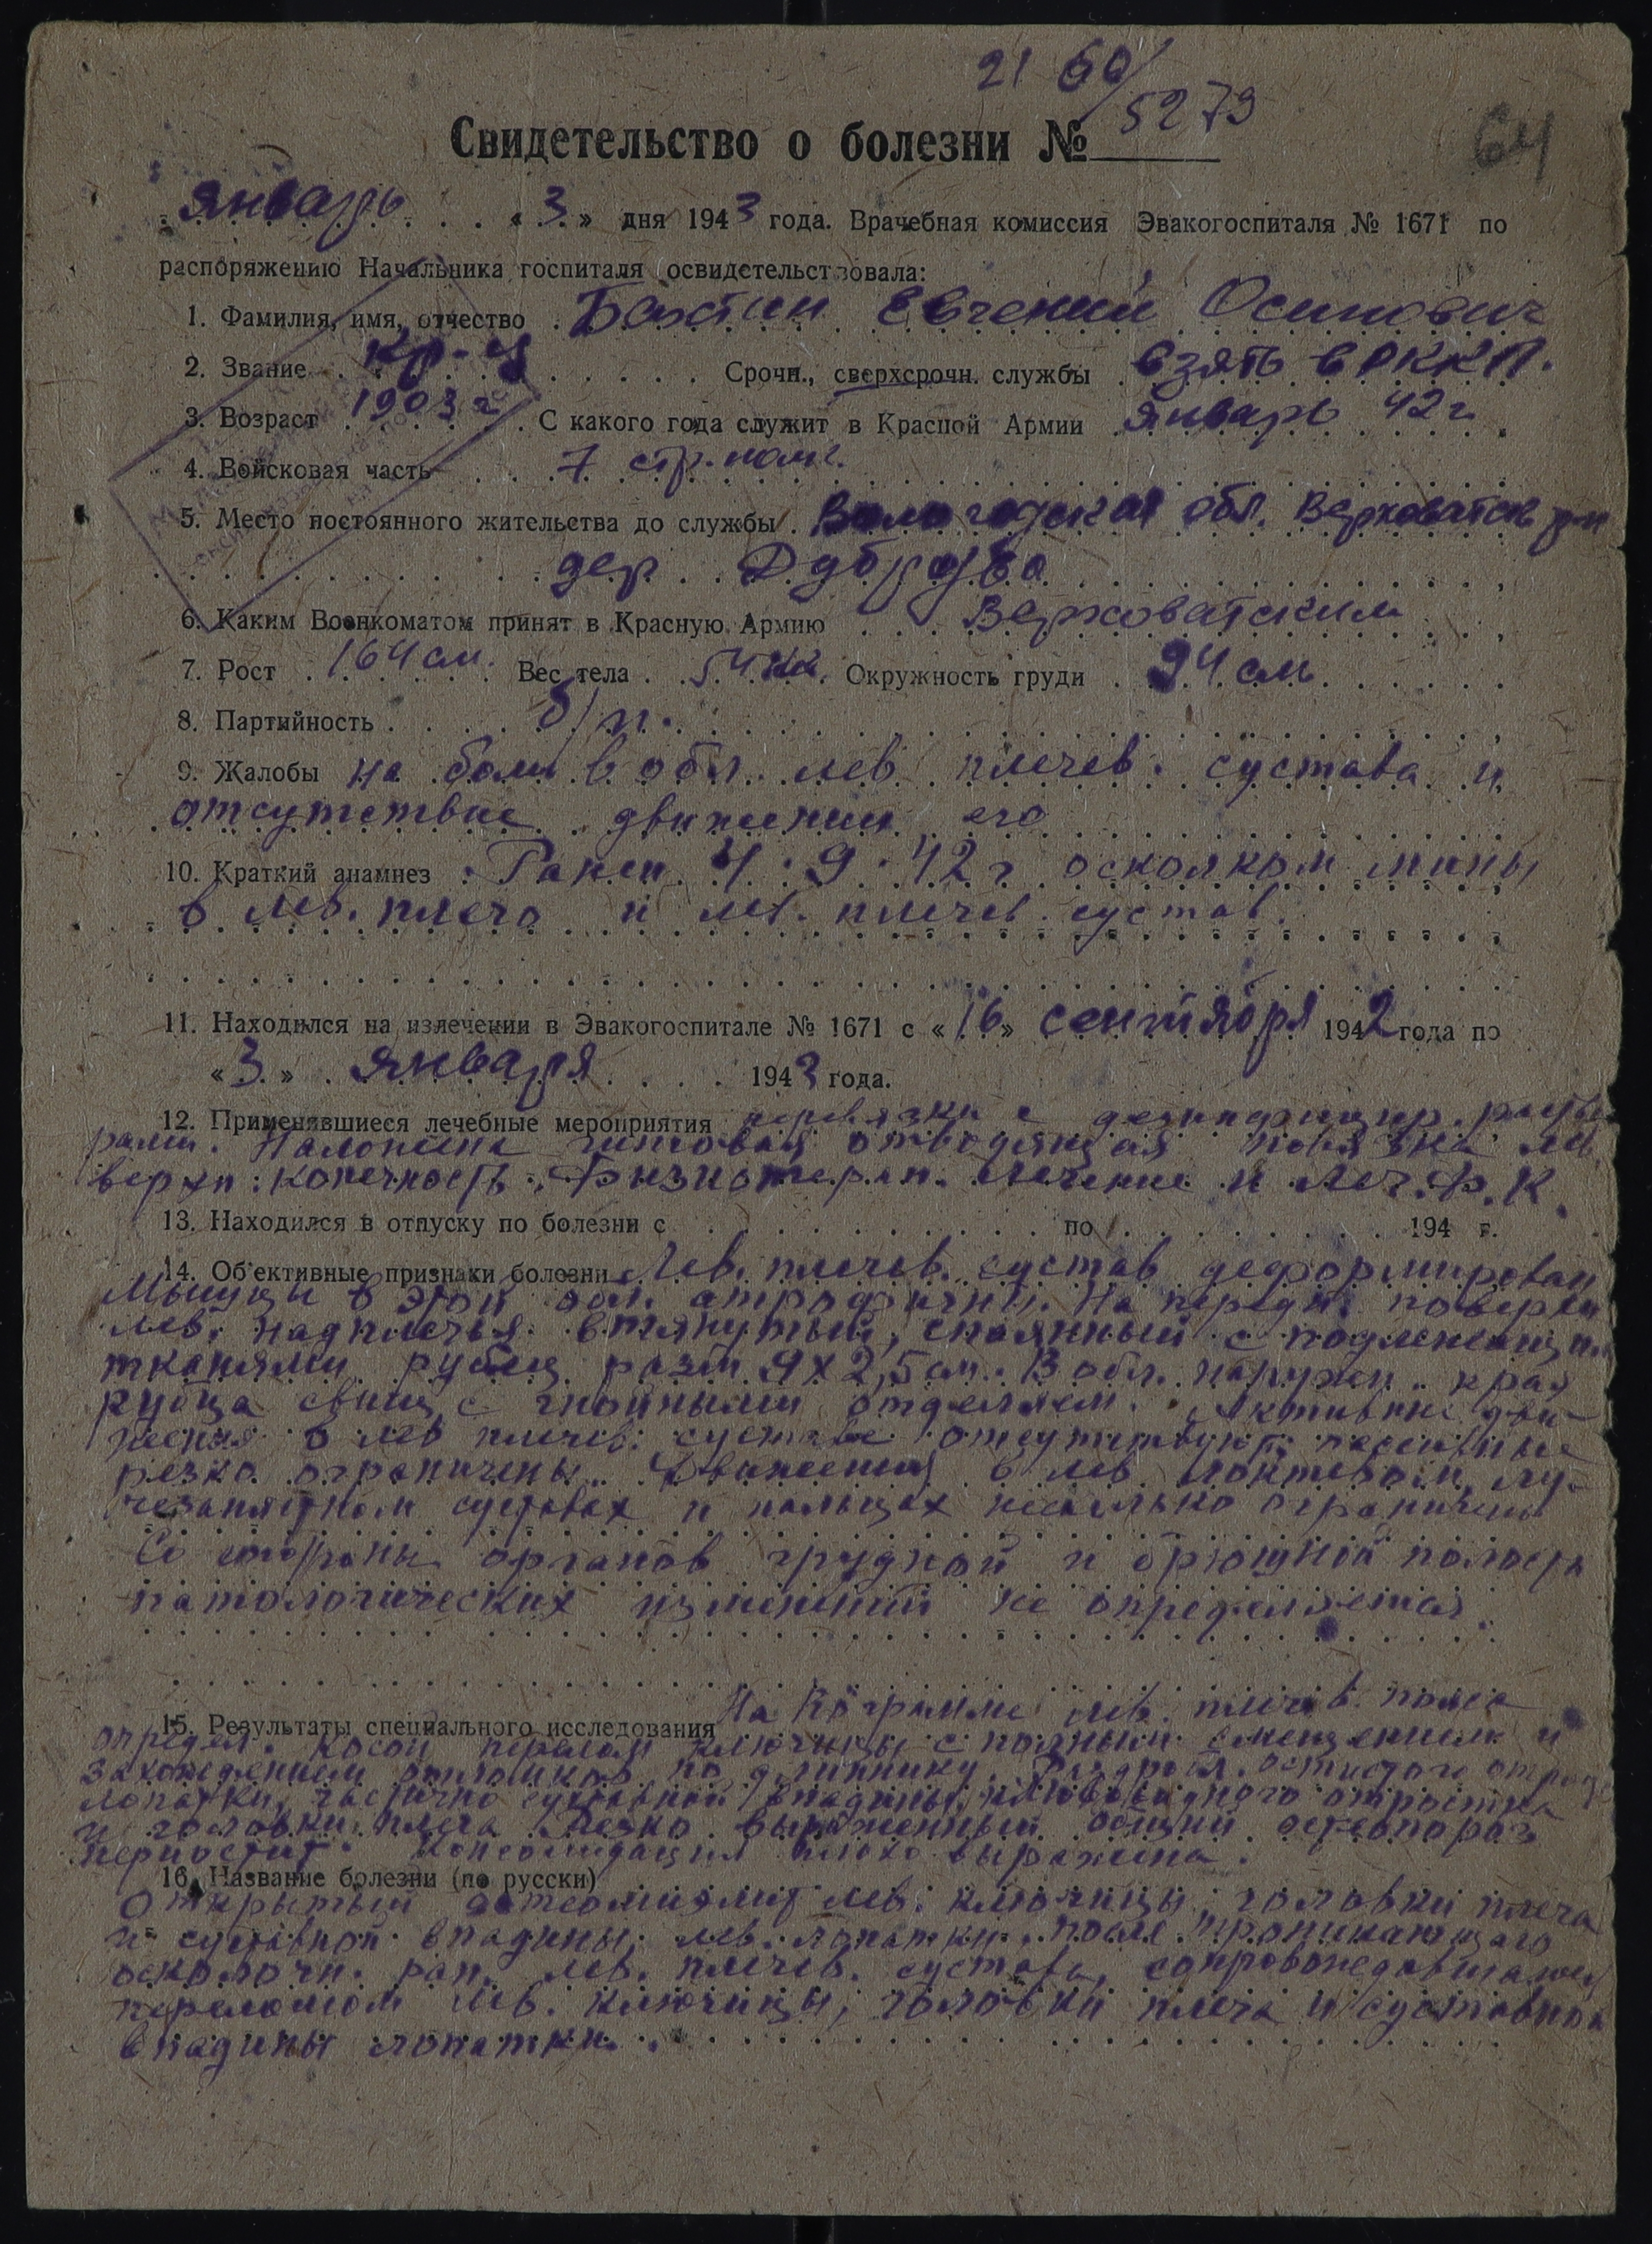 21 60/
5279
64
Свидетельство о болезни №
Январь «3» дня 1943 года. Врачебная комиссия Эвакогоспиталя № 1671 по
распоряжению Начальника госпиталя освидетельствовала:
1. Фамилия, имя, отчество Евгений Осипович
2. Звание кр-ц Срочн., сверхсрочн. службы взят в РККА.
3. Возраст 1903 г. С какого года служит в Красной Армии Январь 42 г
4. Войсковая часть 7 стр. полк.
5. Место постоянного жительства до службы Вологодская обл. Верховатск р-н
дер Дуброва
6. Каким Военкоматом принят в Красную Армию Верховатским
7. Рост 164 см. Вес тела 54 кг. Окружность груди 94 см
8. Партийность б/п.
9. Жалобы на боли в обл. лев плечев. сустава и
отсутствие движений его
10. Краткий анамнез Ранен 4.9.42 г осколком мины
в лев. плечо и лев. плечев. сустав.
11. Находился на излечении в Эвакогоспитале № 1671 с «16» сентября 1942 года по
«3» января 1943 года.
12. Применявшиеся лечебные мероприятия перевязки с дезинфицир. раство
рами. Наложена гипсовая отводящая повязка лев
верхн. конечность. Физиотерап. лечение и Леч.Ф.К.
13. Находился в отпуску по болезни с по 194 г.
14. Об'ективные признаки болезни Лев. плечев. сустав деформирован
Мышцы в этой обл. атрофичны. На передн. поверхн
лев. надплечья втянутый, спаянный с подлежащими
тканями рубец разм 9х2,5 см. В обл. наружн. края
рубца свищ с гнойными отделяем. Активные дви-
жения в лев плечев. суставе отсутствуют, пассивные
резко ограничены. Движения в лев. локтевом, лу-
чезапястном суставах и пальцах несколько ограничены
Со стороны органов грудной и брюшной полости
патологических изменений не определяется.
15. Результаты специального исследования На Rö грамме лев. плечев. пояса
определ. косой перелом ключицы с полным смещением и
захождением отломков по длиннику. Раздробл. остистого отростк
лопатки, частично суставной впадины, клювовидного отростка
и головки плеча Резко выраженный общий остеопороз
периостит. Консолидация плохо выражена.
16. Название болезни (по русски)
Открытый остеомиэлит лев. ключицы, головки плеча
и суставной впадины лев. лопатки, после проникающего
осколочн. ран. лев. плечев. сустава, сопровождавшаяся
переломом лев. ключицы, головки плеча и суставной
впадины лопатки.